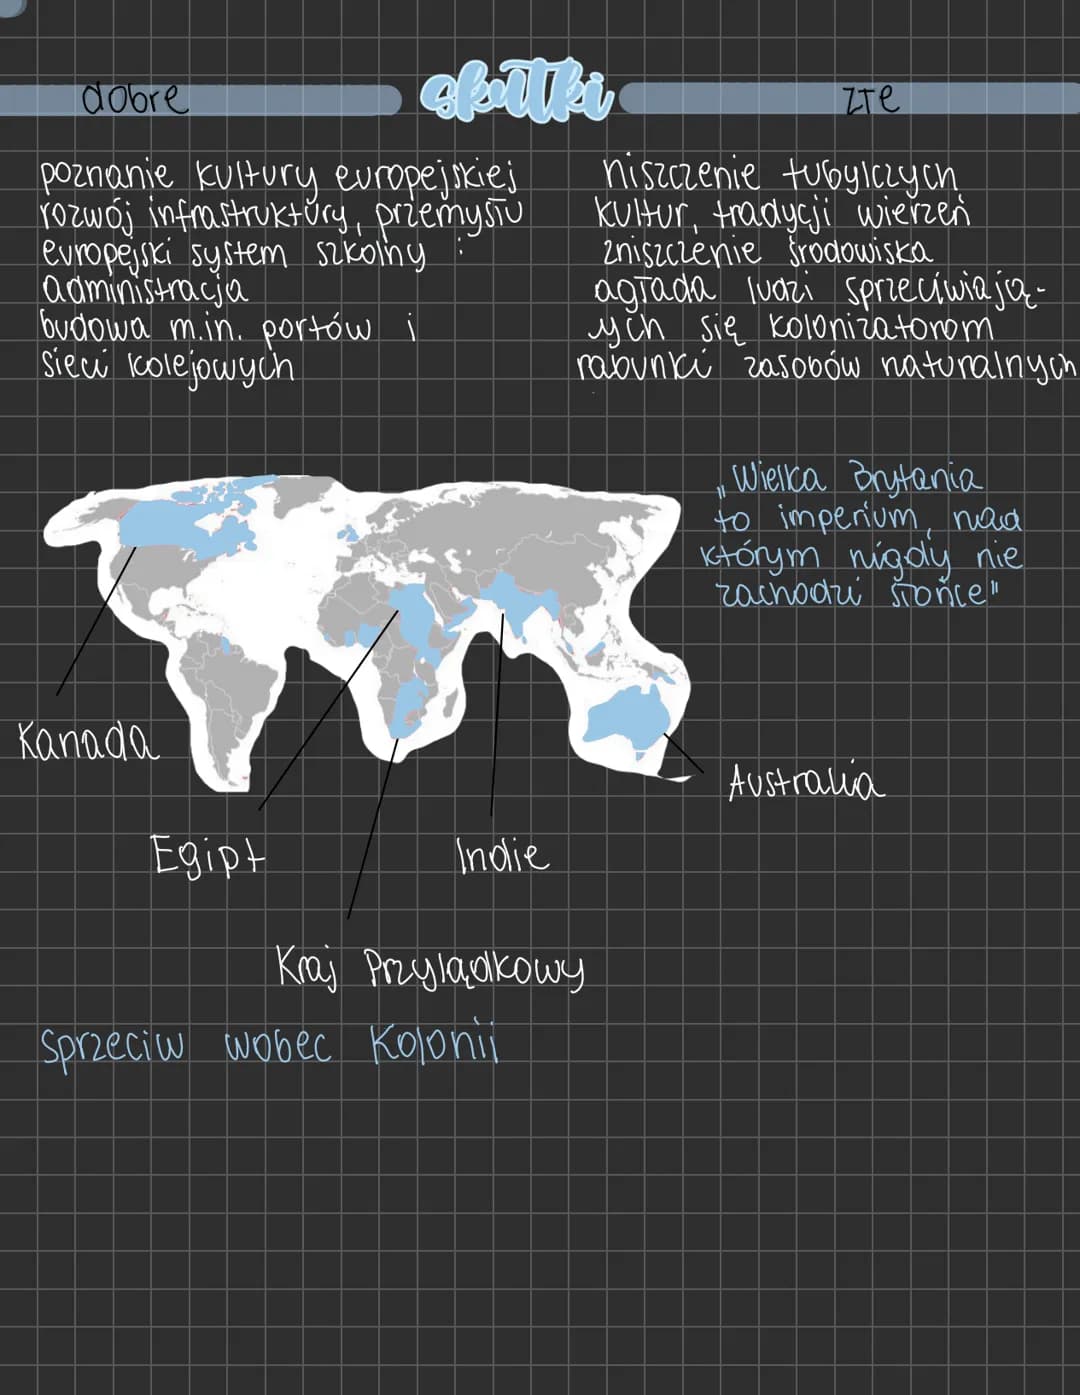 skutki
dobre
poznanie kultury europejskiej
rozwój infrastruktury, przemysłu
europejski system szkolny i
administracja
budowa m.in. portów i
sieci kolejowych
złe
niszczenie tubylczych
kultur, tradycji wierzeń
zniszczenie środowiska
agłada ludzi sprzeciwiają-
ych się kolonizatorom
rabunki zasobów naturalnych
„Wielka Brytania
to imperium, nad
którym nigdy nie
zachodzi słońce"
Kanada
Australia
Egipt
Indie
Kraj Przylądkowy
sprzeciw wobec Kolonii